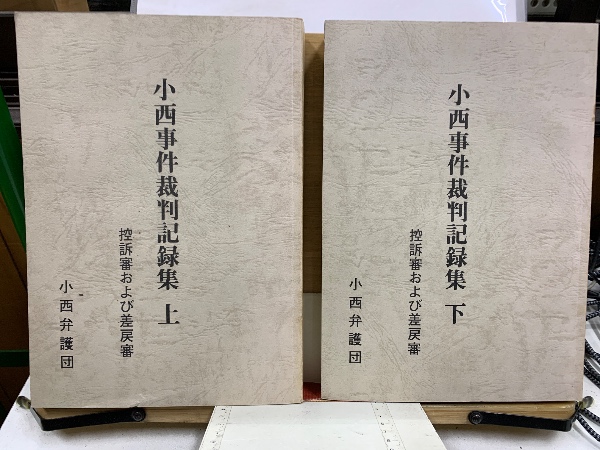 小西事件裁判記録集 上
控訴審および差戻審
小西弁護団
小西事件裁判記録集 下
控訴審および差戻審
小西弁護団